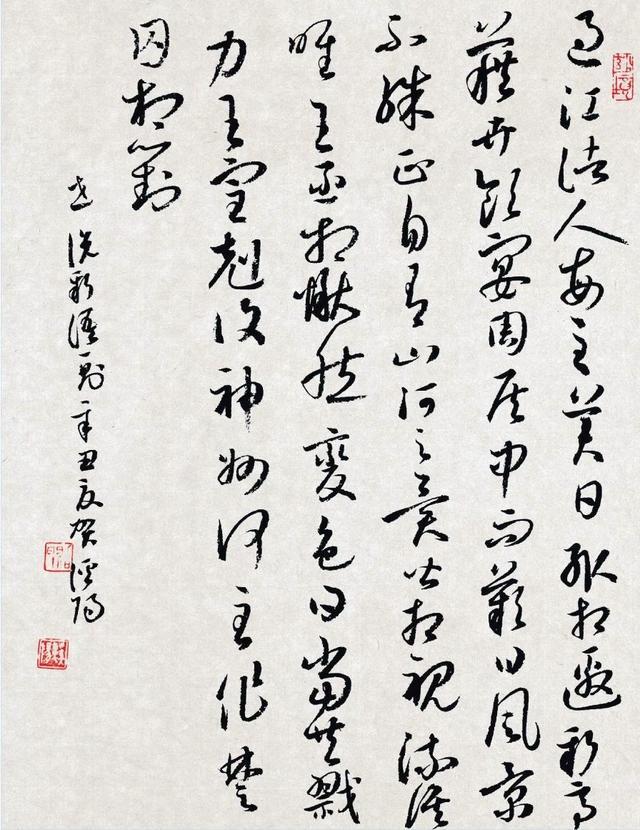 過江諸人每至美日輒相邀新亭
藉卉飲宴周侯中而歎曰風景
不殊正自有山河之異皆相視流淚
唯王丞相愀然變色曰當共戮
力王室剋復神州何至作楚
囚相對
世說新語一則辛丑夏賀